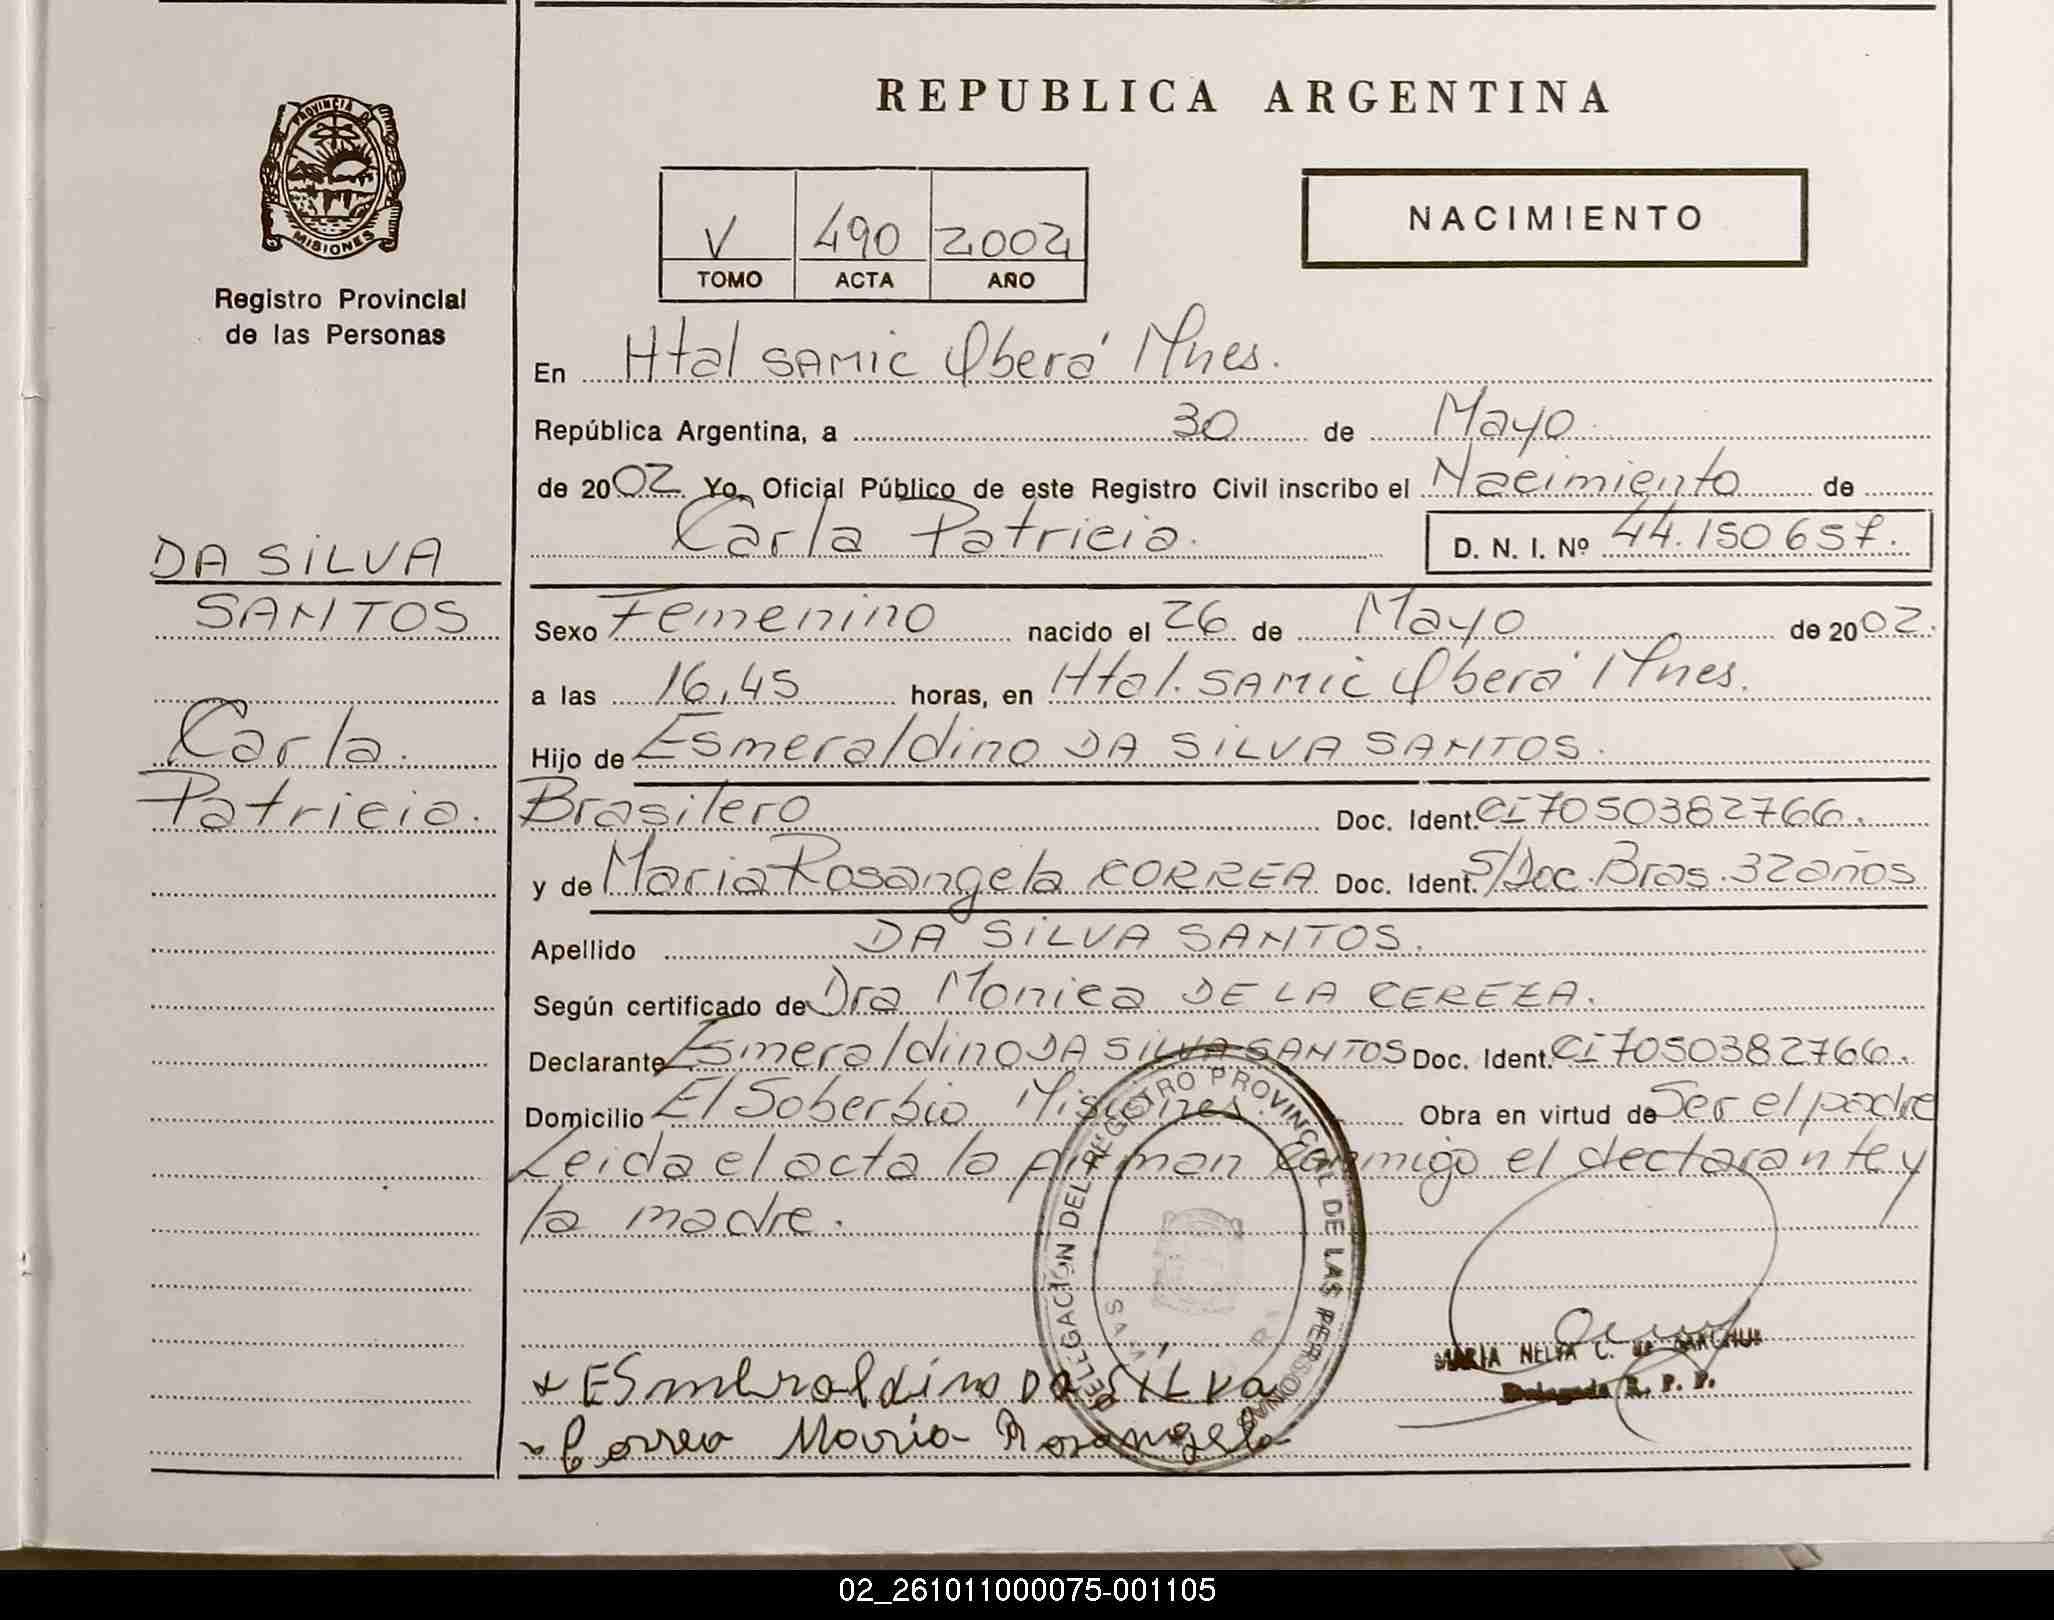 REPUBLICA ARGENTINA
PROVINCIA DE
MISIONES
Registro Provincial
de las Personas
V 490 2002
TOMO ACTA AÑO
NACIMIENTO
En Htal SAMIC Oberá Mnes.
República Argentina, a 30 de Mayo
de 2002 Yo, Oficial Público de este Registro Civil inscribo el Nacimiento de
Carla Patricia. D. N. I. Nº 44.150.657.
DA SILVA
SANTOS
Carla
Patricia.
Sexo Femenino nacido el 26 de Mayo de 2002.
a las 16,45 horas, en Htal. SAMIC Oberá Mnes.
Hijo de Esmeraldino DA SILVA SANTOS.
Brasilero Doc. Ident. CI 7050382766.
y de Maria Rosangela CORREA Doc. Ident. S/Doc. Bras. 32 años
Apellido DA SILVA SANTOS.
Según certificado de Dra Monica DE LA CEREZA.
Declarante Esmeraldino DA SILVA SANTOS Doc. Ident. CI 7050382766.
Domicilio El Soberbio Misiones. Obra en virtud de Ser el padre
Leida el acta la firman conmigo el declarante y
la madre.
DELEGACIÓN DEL REGISTRO PROVINCIAL DE LAS PERSONAS
MARIA NELFA C. de
Delegada R. P. P.
ESmeraldino DA SiLva
Correa Maria Rosangela
02_261011000075-001105